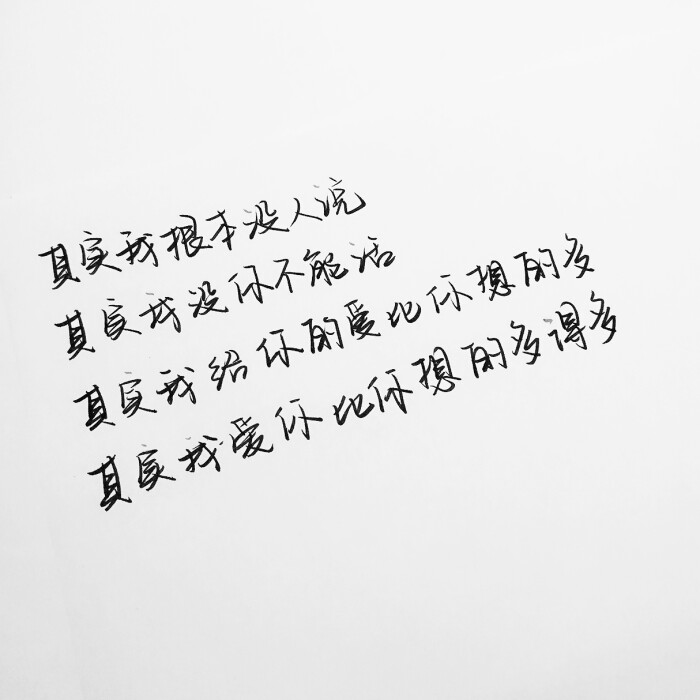 其实我根本没人说
其实我没你不能活
其实我给你的爱比你想的多
其实我爱你比你想的多得多